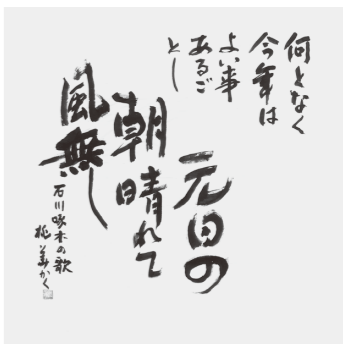 何となく
今年は
よい事
あるご
とし
元日の
朝晴れて
風無し
石川啄木の歌